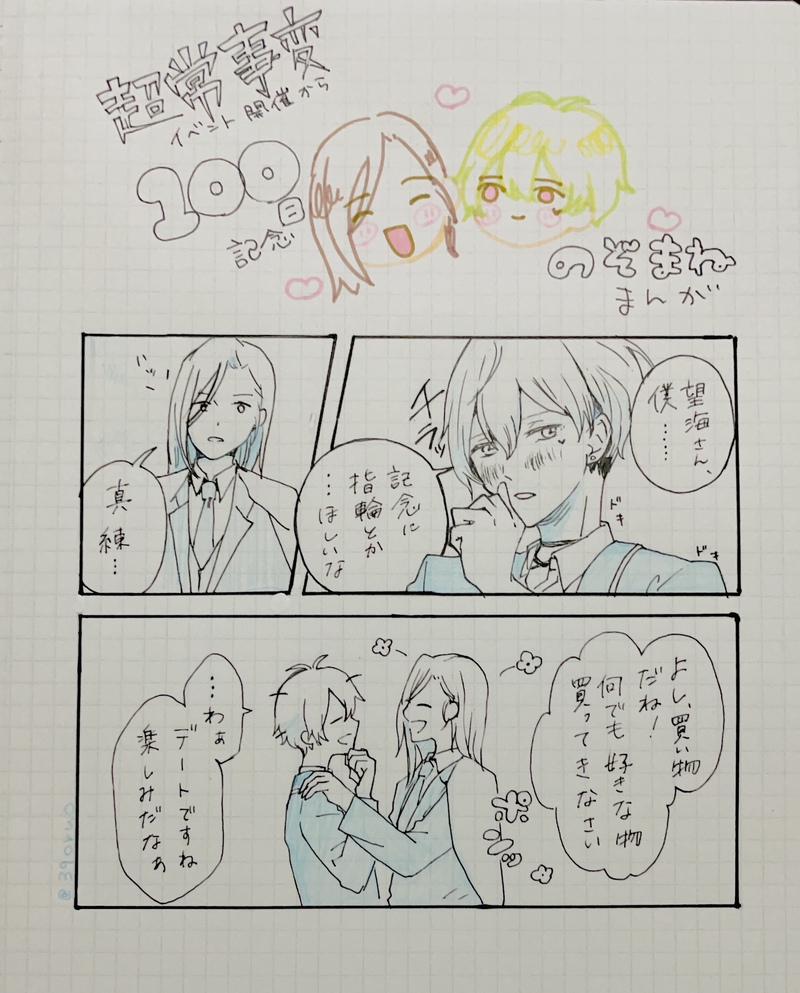 超常事変
イベント開催から
100日
記念
のぞまね
まんが
望海さん、
僕……
チラッ
記念に
指輪とか
…ほしいな
ドキ
ドキ
真練…
よし、買い物
だね!
何でも好きな物
買ってきなさい
…わぁ
デートですね
楽しみだなぁ